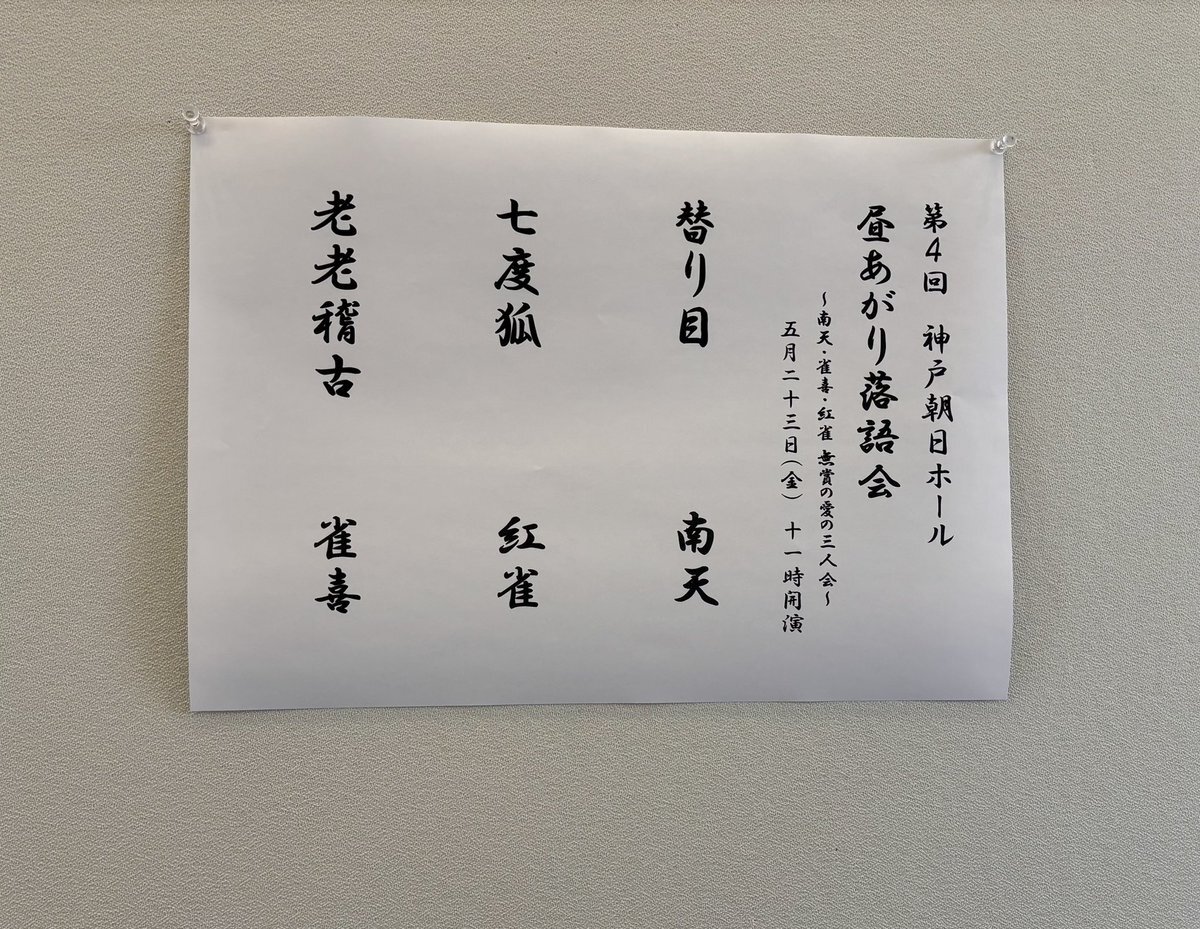 第4回 神戸朝日ホール
昼あがり落語会
~南天・雀喜・紅雀 無賞の愛の三人会~
五月二十三日(金) 十一時開演
替り目 南天
七度狐 紅雀
老老稽古 雀喜